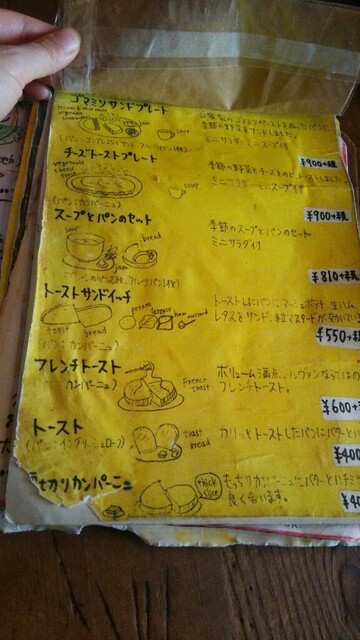 ゴマミソサンドプレート
季節の野菜をサンドしました。
ミニサラダ・ミニスープ付
soup
¥900+税
チーズトーストプレート
vegetable
cheese
toast
季節の野菜とチーズをのせトーストしました
ミニサラダ・ミニスープ付
soup
(パン:カンパーニュ)
¥900+税
スープとパンのセット
soup
bread
jam
季節のスープとパンのセット
ミニサラダ付
¥810+税
トーストサンドイッチ
トーストしたパンにマッシュポテト、生ハム
レタスをサンド、粒マスタードが
potato
lettuce
ham
mustard
toast bread
(パン:カンパーニュ)
¥550+税
フレンチトースト
(パン:カンパーニュ)
French
toast
ボリューム満点、ルヴァンならではの
フレンチトースト。
¥600+
トースト
(パン:イングリッシュローフ)
toast
bread
カリッとトーストしたパンにバターと
¥400
切りカンパーニュ
thick
slice
もっちりカンパーニュにバターとハチミツ
良く合います。
¥40